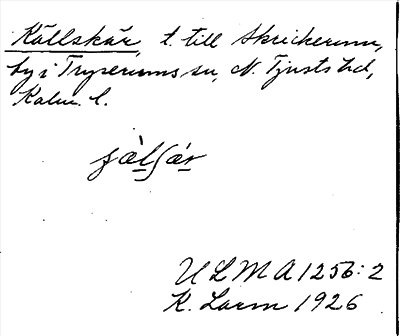 Källskär, t. till Skrickerum,
by i Tryserums sn, N. Tjusts hd,
Kalm. l.
ſælſár
ULMA 1256:2
K. Larm 1926